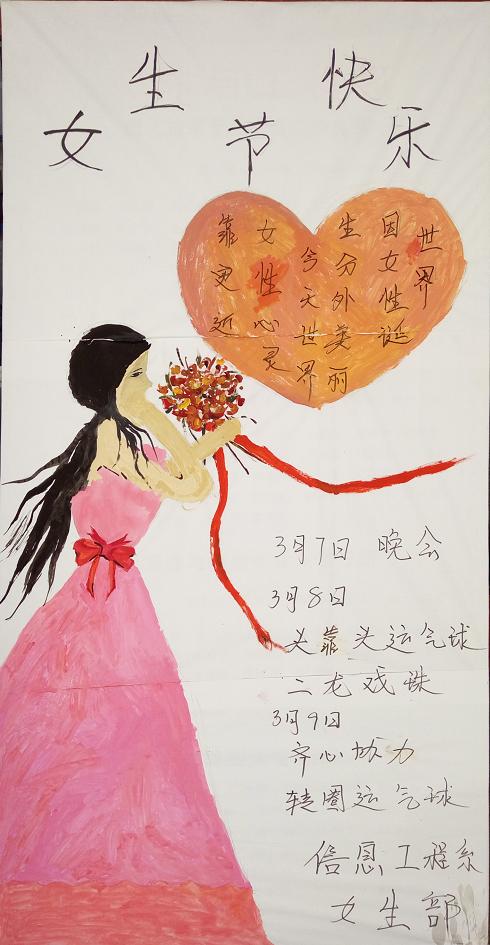 女生节快乐
世界
因女性诞
生分外美丽
今天世界
女性心灵
靠更近
3月7日 晚会
3月8日
头靠头运气球
二龙戏珠
3月9日
齐心协力
转圈运气球
信息工程系
女生部